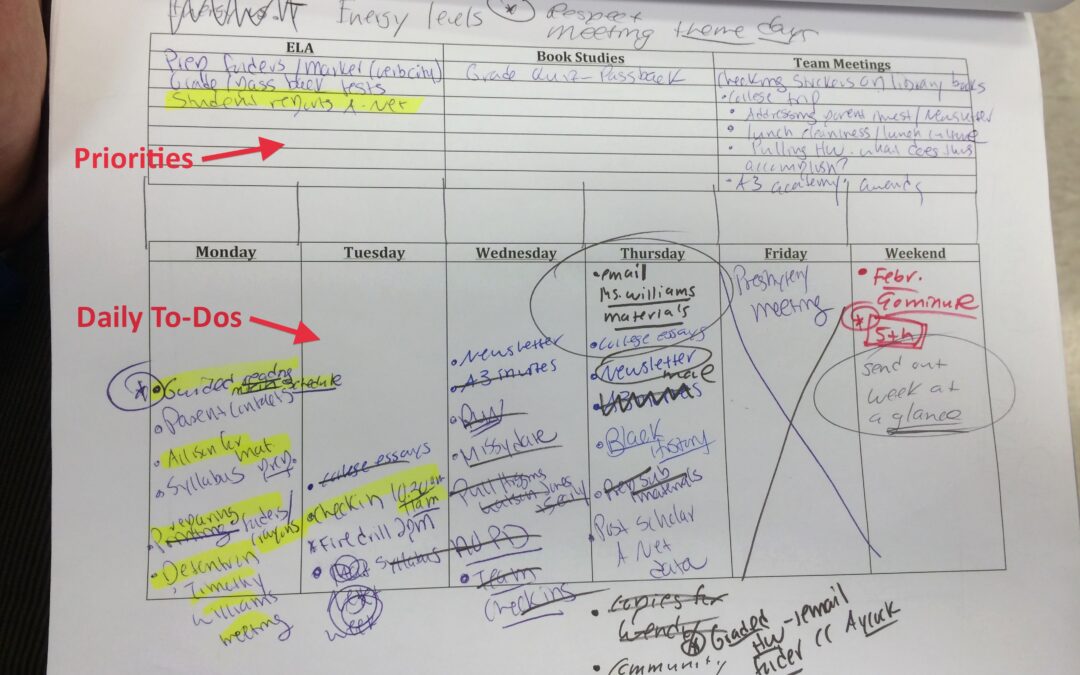 Energy levels * Respect
meeting theme days
ELA
Book Studies
Team Meetings
Prep folders/market (verbocity)
Grade/pass back tests
Student reports A-Net
Grade Quiz-Passback
Checking stickers on library books
• College trip
• Addressing parent invest/Newsletter
• lunch cleanliness/lunch culture
• Pulling HW-what does this
accomplish?
• A3 academy awards
Priorities
Monday
Tuesday
Wednesday
Thursday
Friday
Weekend
Daily To-Dos
* • Guided reading
schedule
• Parent Contacts
• Allison for mat.
• Syllabus prep.
• Preparing folders/
crayons
• Detention
; Timothy
Williams
meeting
• college essays
• Check in 10:30am
11am
* Fire drill 2pm
• Syllabus
next
week
• Newsletter
• A3 minutes
• Missy dare
• NO PD
• Team
Check ins
• email
Ms. Williams
materials
• College essays
• Newsletter
male
• Black
History
• Prep Sub
materials
• Post Scholar
A Net
data
• Copies for
Wendy
* Graded
HW-email
folder CC
• Community
Presbytery
meeting
• Febr.
Gominute
* 5th
send out
week at
a glance